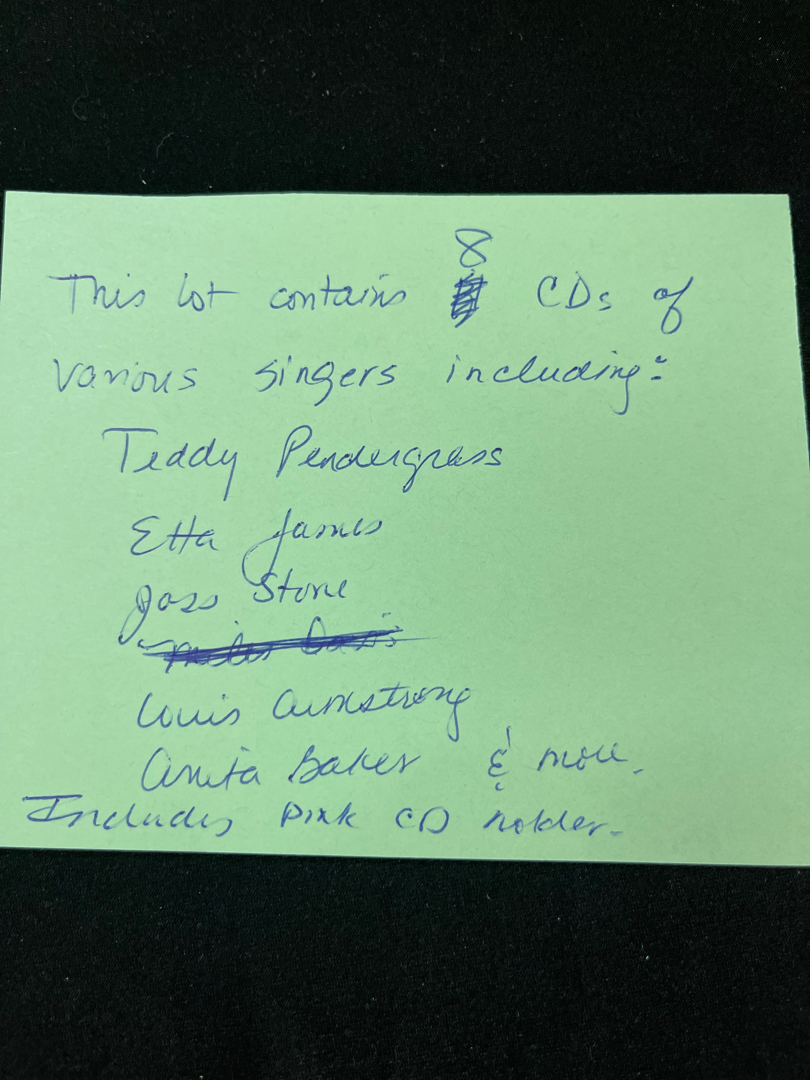 This lot contains 8 CDs of
various singers including:
Teddy Pendergrass
Etta James
Joss Stone
Miles Davis
Louis Armstrong
Anita Baker & more.
Includes Pink CD holder.